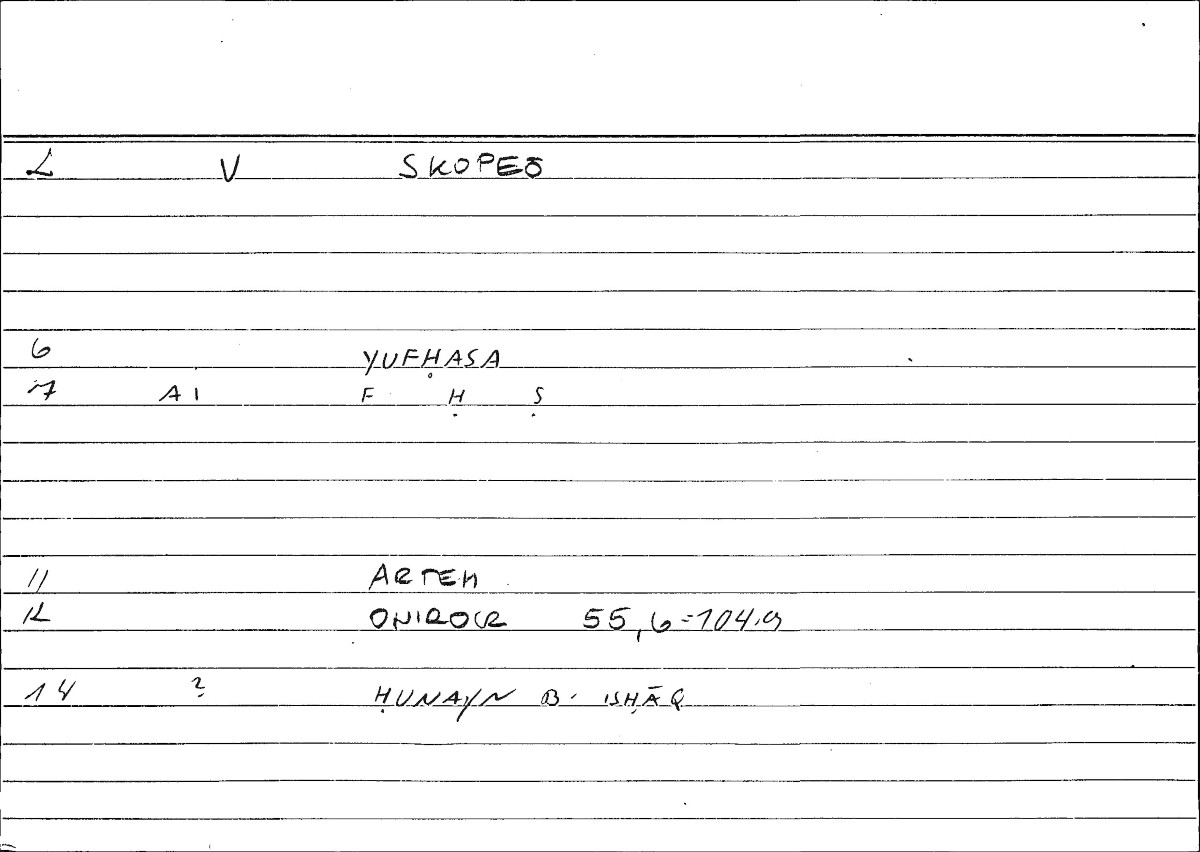 L V SKOPEŌ
6 YUFḤASA
7 A1 F Ḥ Ṣ
11 ARTEM
12 ONIROCR 55,6=104.9
14 ? ḤUNAYN B. ISḤĀQ